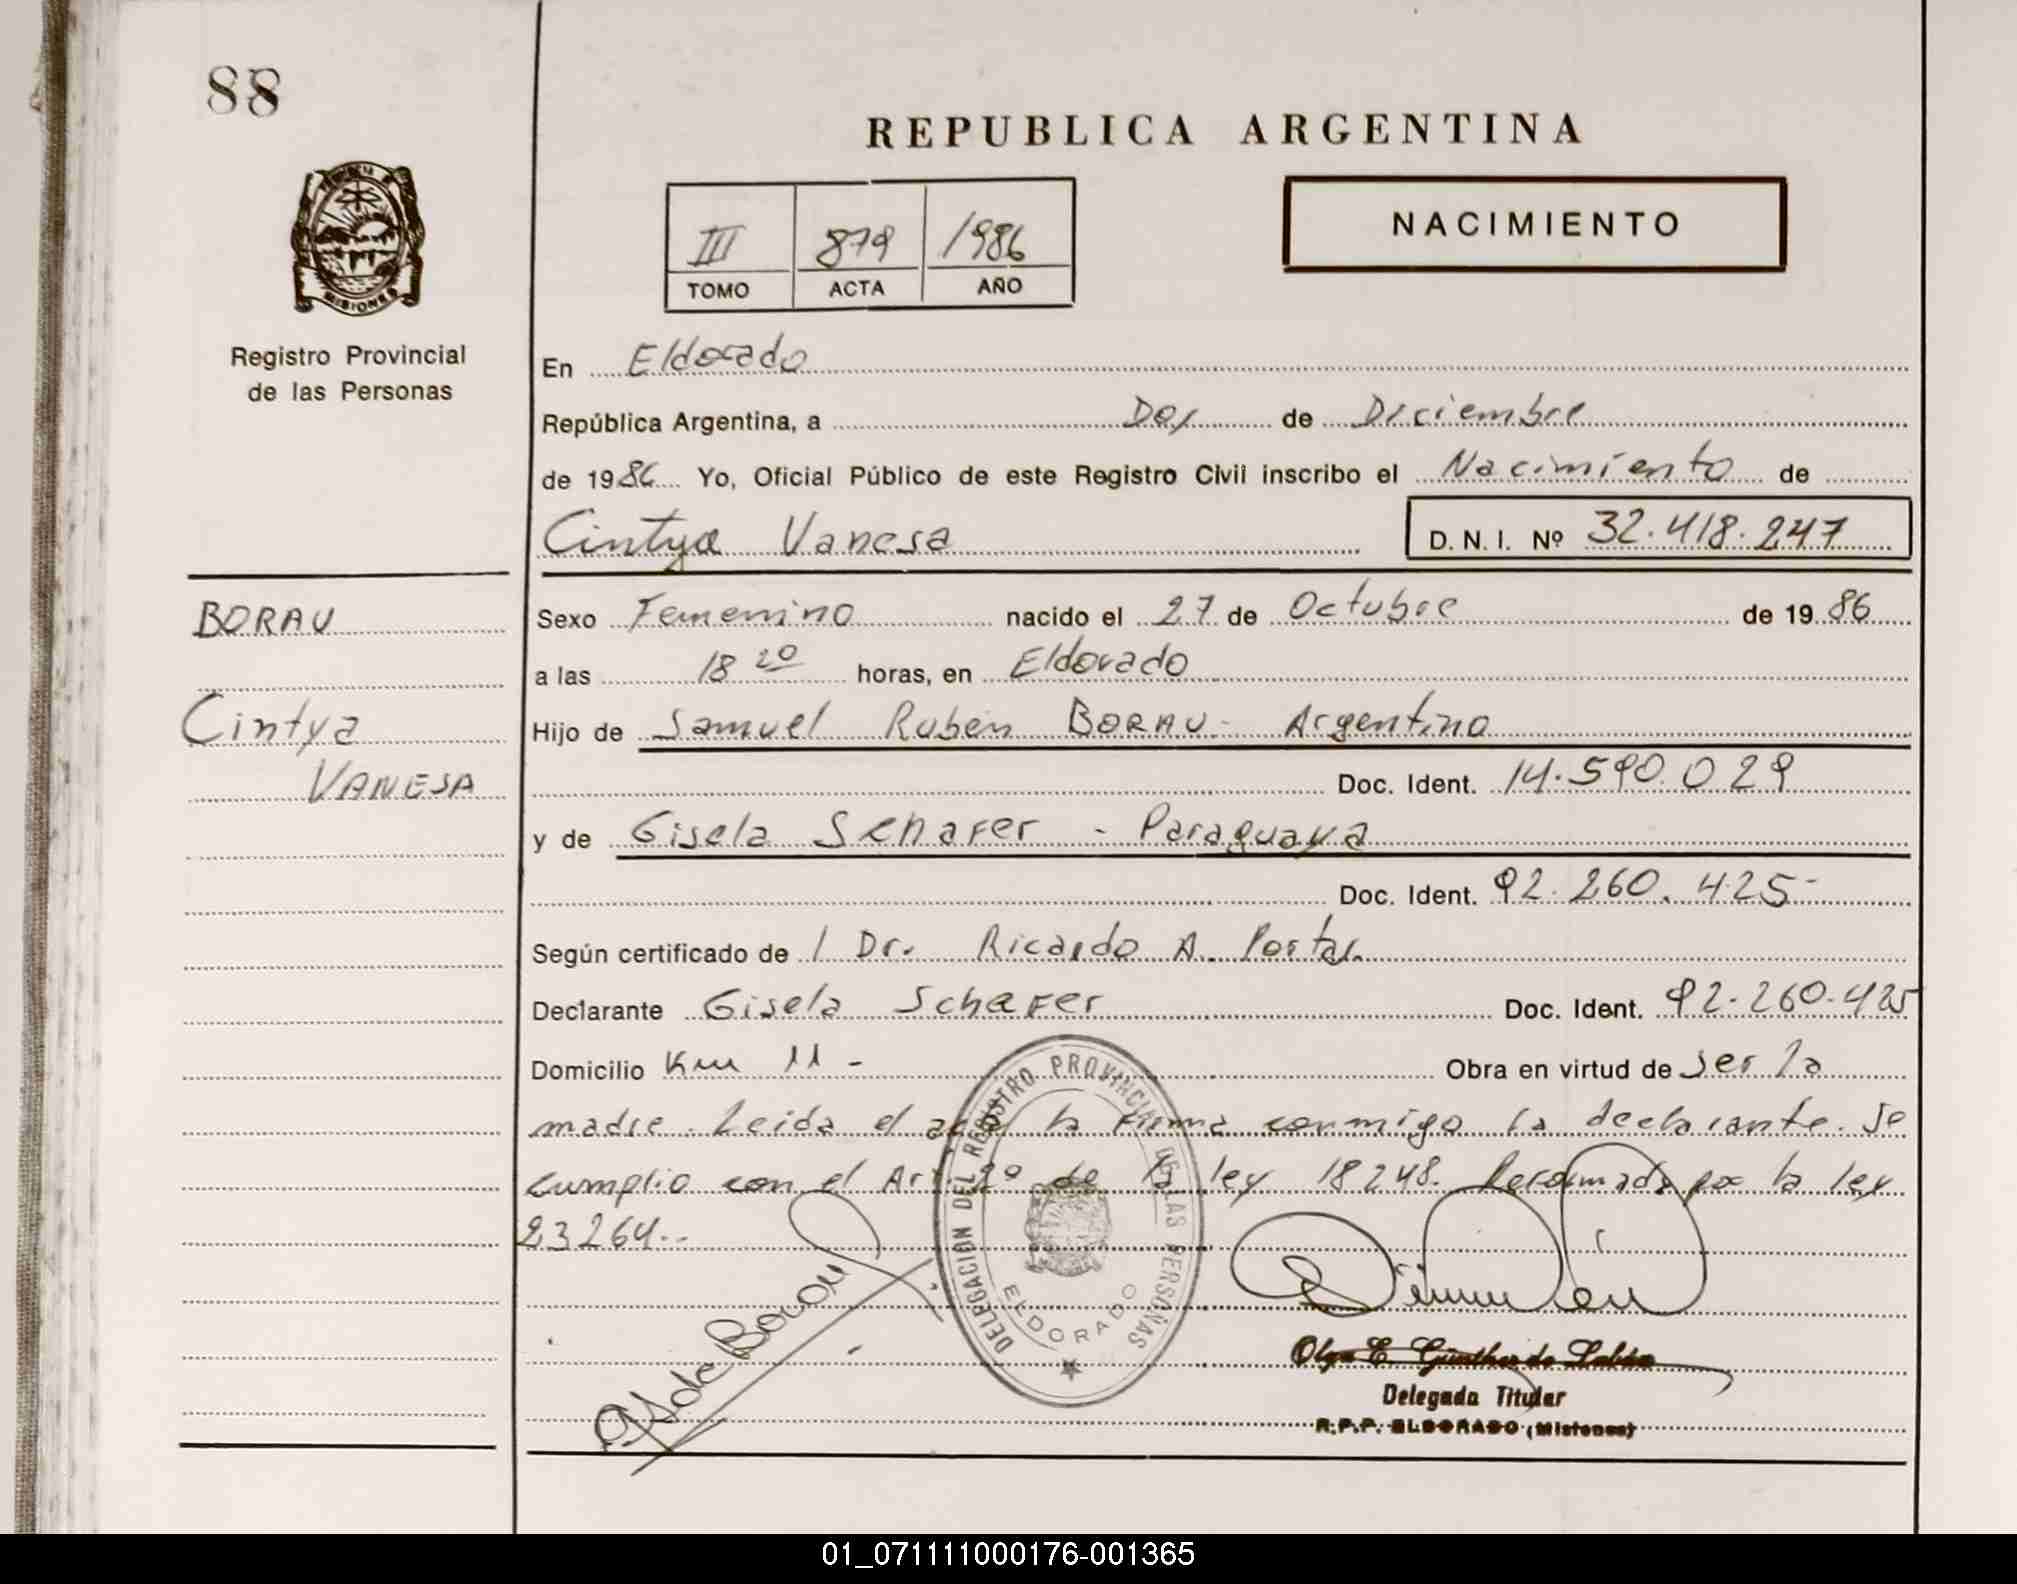 88
REPUBLICA ARGENTINA
NACIMIENTO
III 879 1986
TOMO ACTA AÑO
MISIONES
Registro Provincial
de las Personas
En Eldorado
República Argentina, a Dos de Diciembre
de 1986 Yo, Oficial Público de este Registro Civil inscribo el Nacimiento de
Cintya Vanesa D.N.I. Nº 32.418.247
BORAU
Cintya
VANESA
Sexo Femenino nacido el 27 de Octubre de 1986
a las 18 20 horas, en Eldorado
Hijo de Samuel Rubén BORAU - Argentino
Doc. Ident. 14.590.029
y de Gisela Schafer - Paraguaya
Doc. Ident. 92.260.425-
Según certificado de l Dr. Ricardo A. Portal
Declarante Gisela Schafer Doc. Ident. 92-260-425
Domicilio Km 11 - Obra en virtud de ser la
madre. Leida el acta la firma conmigo la declarante. Se
cumplio con el Art 2º de la ley 18248. Reformada por la ley
23264.-
DELEGACION DEL REGISTRO PROVINCIAL DE LAS PERSONAS
ELDORADO
G S de Borau
Olga E. Günther de
Delegada Titular
R.P.P. ELDORADO (Misiones)
01_071111000176-001365